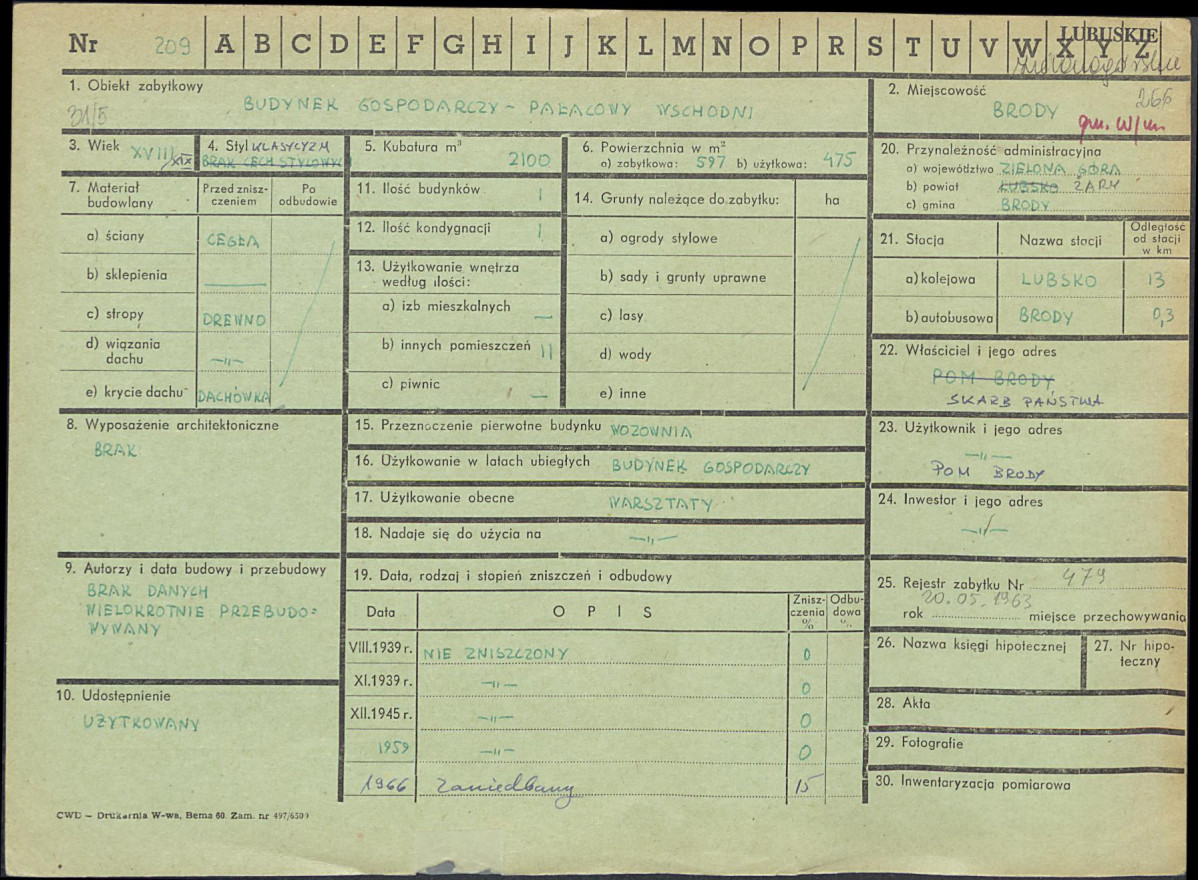 Nr 209 A B C D E F G H I J K L M N O P R S T U V W X Y Z
LUBUSKIE
zielonogórskie
1. Obiekt zabytkowy
31/5
BUDYNEK GOSPODARCZY - PAŁACOWY WSCHODNI
2. Miejscowość
266
BRODY
gm. W/m
3. Wiek XVIII/XIX
4. Styl KLASYCYZM
BRAK CECH STYLOWYCH
5. Kubatura m³
2100
6. Powierzchnia w m²
a) zabytkowa: 597 b) użytkowa: 475
20. Przynależność administracyjna
a) województwo ZIELONA GÓRA
b) powiat LUBSKO ŻARY
c) gmina BRODY
7. Materiał budowlany
Przed zniszczeniem
Po odbudowie
a) ściany CEGŁA
b) sklepienia —
c) stropy DREWNO
d) wiązania dachu —„—
e) krycie dachu DACHÓWKA
11. Ilość budynków 1
12. Ilość kondygnacji 1
13. Użytkowanie wnętrza według ilości:
a) izb mieszkalnych —
b) innych pomieszczeń 11
c) piwnic —
14. Grunty należące do zabytku: ha
a) ogrody stylowe
b) sady i grunty uprawne
c) lasy
d) wody
e) inne
21. Stacja Nazwa stacji Odległość od stacji w km
a) kolejowa LUBSKO 13
b) autobusowa BRODY 0,3
22. Właściciel i jego adres
POM BRODY
SKARB PAŃSTWA
8. Wyposażenie architektoniczne
BRAK
15. Przeznaczenie pierwotne budynku WOZOWNIA
16. Użytkowanie w latach ubiegłych BUDYNEK GOSPODARCZY
17. Użytkowanie obecne WARSZTATY
18. Nadaje się do użycia na —„—
23. Użytkownik i jego adres
—„—
POM BRODY
24. Inwestor i jego adres
—„—
9. Autorzy i data budowy i przebudowy
BRAK DANYCH
WIELOKROTNIE PRZEBUDO=
WYWANY
10. Udostępnienie
UŻYTKOWANY
19. Data, rodzaj i stopień zniszczeń i odbudowy
Data O P I S Zniszczenia % Odbudowa %
VIII.1939 r. NIE ZNISZCZONY 0
XI.1939 r. —„— 0
XII.1945 r. —„— 0
1959 —„— 0
1966 Zaniedbany 15
25. Rejestr zabytku Nr 479
20.05.1963
rok miejsce przechowywania
26. Nazwa księgi hipotecznej
27. Nr hipoteczny
28. Akta
29. Fotografie
30. Inwentaryzacja pomiarowa
CWD — Drukarnia W-wa, Bema 60. Zam. nr 497/6509